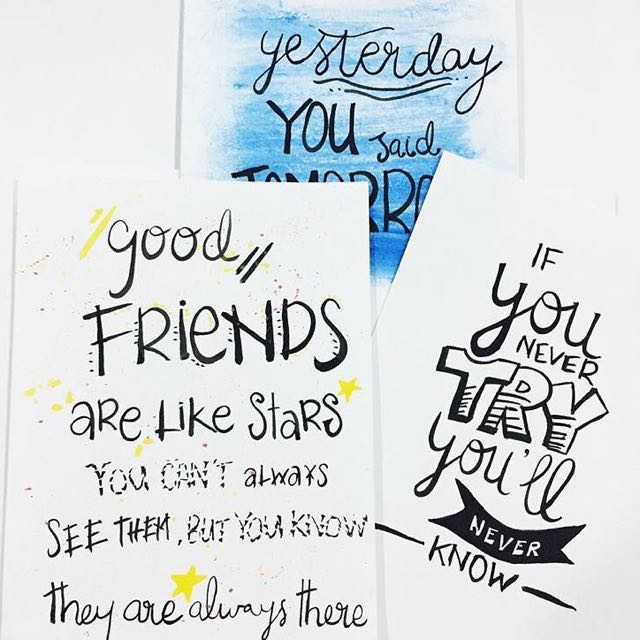 yesterday
YOU said
TOMORRO
good
FRIENDS
are LIKE StaRS
YOU CAN'T always
SEE THEM, BUT YOU KNOW
they are always there
IF
you
NEVER
TRY
you'll
NEVER
KNOW